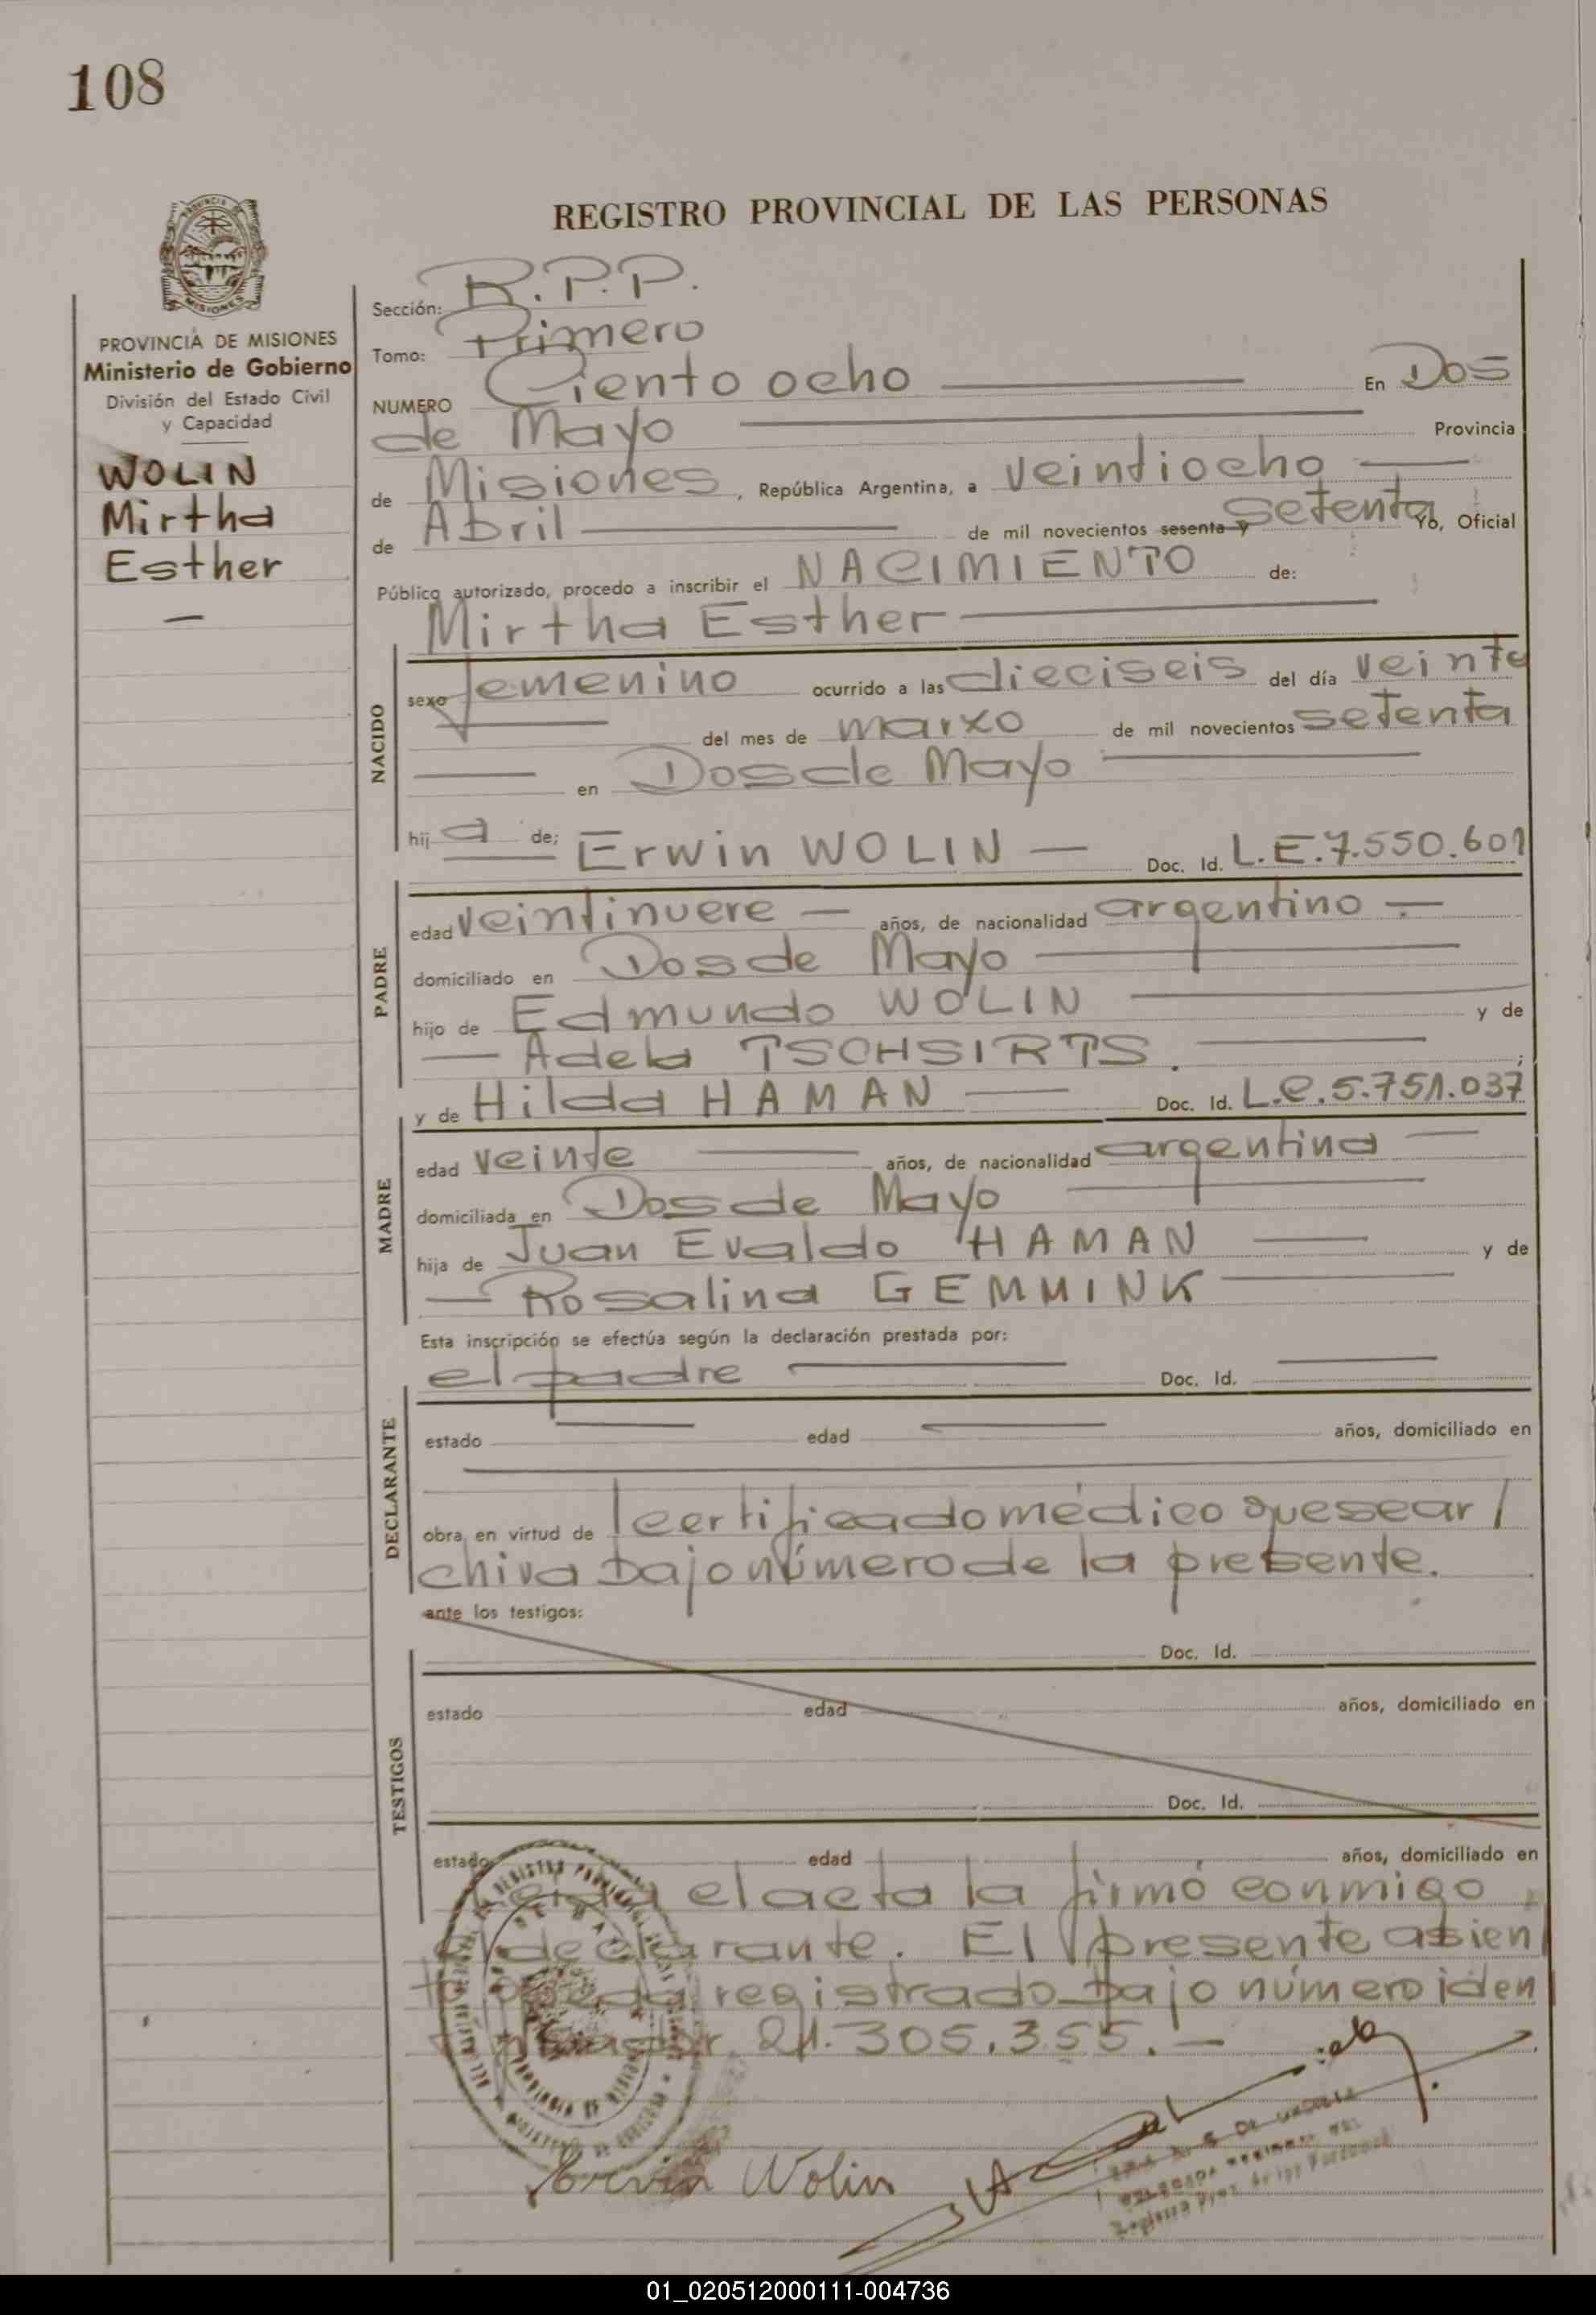 108
REGISTRO PROVINCIAL DE LAS PERSONAS
PROVINCIA DE MISIONES
Ministerio de Gobierno
División del Estado Civil
y Capacidad
WOLIN
Mirtha
Esther
Sección: R.P.P.
Tomo: Primero
NUMERO Ciento ocho En Dos
de Mayo Provincia
de Misiones, República Argentina, a veintiocho
de Abril de mil novecientos sesenta y setenta Yo, Oficial
Público autorizado, procedo a inscribir el NACIMIENTO de:
Mirtha Esther
NACIDO
sexo femenino ocurrido a las dieciseis del día veinte
del mes de marzo de mil novecientos setenta
en Dos de Mayo
hij a de; Erwin WOLIN Doc. Id. L.E.7.550.601
PADRE
edad veintinueve años, de nacionalidad argentino
domiciliado en Dos de Mayo
hijo de Edmundo WOLIN y de
Adela TSCHSIRTS.
y de Hilda HAMAN Doc. Id. L.C.5.751.037
MADRE
edad veinte años, de nacionalidad argentina
domiciliada en Dos de Mayo
hija de Juan Evaldo HAMAN y de
Rosalina GEMMINK
Esta inscripción se efectúa según la declaración prestada por:
el padre Doc. Id.
DECLARANTE
estado edad años, domiciliado en
obra, en virtud de l certificado médico que se ar/
chiva bajo número de la presente.
ante los testigos:
Doc. Id.
TESTIGOS
estado edad años, domiciliado en
Doc. Id.
estado edad años, domiciliado en
el acta la firmó conmigo
declarante. El presente asien
to queda registrado bajo número iden
21.305.355.-
Erwin Wolin
01_020512000111-004736